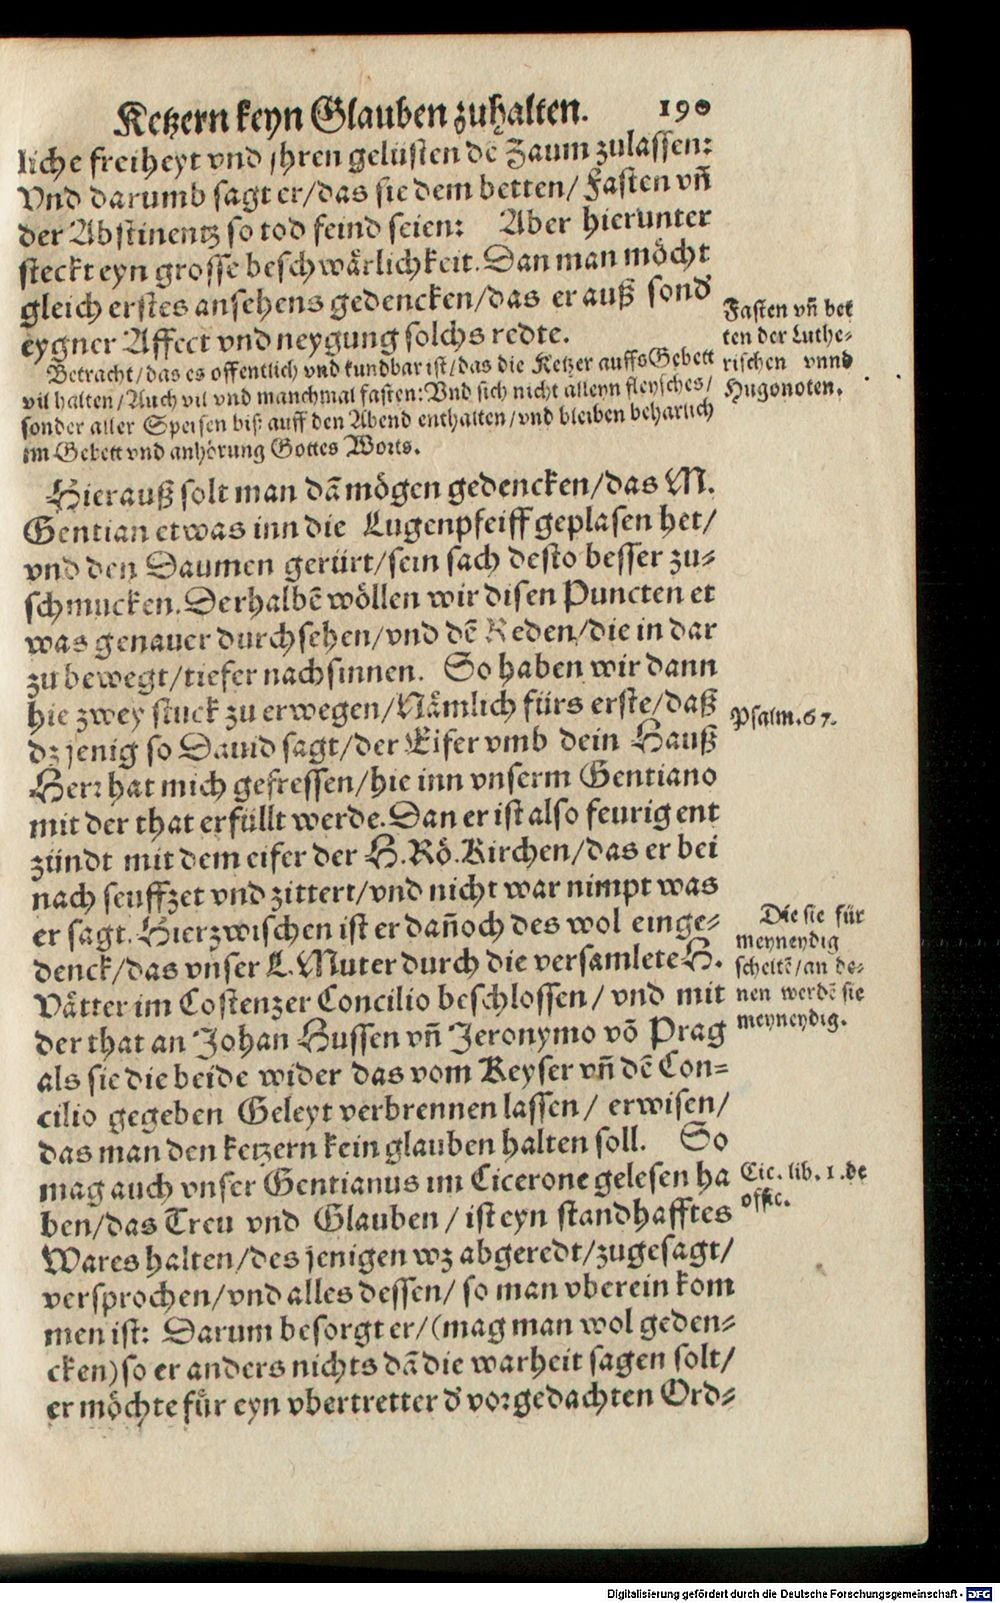 Ketzern keyn Glauben zuhalten. 190
liche freiheyt vnd jhren gelüsten dē Zaum zulassen:
Vnd darumb sagt er/das sie dem betten/ Fasten vñ
der Abstinentz so tod feind seien: Aber hierunter
steckt eyn grosse beschwärlichkeit. Dan man möcht
gleich erstes ansehens gedencken/das er auß sond'
eygner Affect vnd neygung solchs redte.
Fasten vñ bet
ten der Luthe-
rischen vnnd
Hugonoten.
Betracht/das es offentlich vnd kundbar ist/das die Ketzer auffs Gebett
vil halten/Auch vil vnd manchmal fasten: Vnd sich nicht alleyn fleysches/
sonder aller Speisen biß auff den Abend enthalten/vnd bleiben beharlich
im Gebett vnd anhörung Gottes Worts.
Hierauß solt man dā mögen gedencken/das M.
Gentian etwas inn die Lugenpfeiff geplasen het/
vnd den Daumen gerürt/sein sach desto besser zu-
schmucken. Derhalbē wöllen wir disen Puncten et
was genauer durchsehen/vnd dē Reden/die in dar
zu bewegt/tiefer nachsinnen. So haben wir dann
hie zwey stuck zu erwegen/Nämlich fürs erste/daß
dz jenig so Dauid sagt/der Eifer vmb dein Hauß
Psalm.67.
Herr hat mich gefressen/hie inn vnserm Gentiano
mit der that erfüllt werde. Dan er ist also feurig ent
zündt mit dem eifer der H. Rö. Kirchen/das er bei
nach seuffzet vnd zittert/vnd nicht war nimpt was
er sagt. Hierzwischen ist er dañoch des wol einge-
denck/das vnser L. Muter durch die versamlete H.
Vätter im Costenzer Concilio beschlossen/ vnd mit
der that an Johan Hussen vñ Jeronymo vō Prag
Die sie für
meyneydig
scheltē/an de-
nen werdē sie
meyneydig.
als sie die beide wider das vom Keyser vñ dē Con-
cilio gegeben Geleyt verbrennen lassen/ erwisen/
das man den ketzern kein glauben halten soll. So
mag auch vnser Gentianus im Cicerone gelesen ha
ben/das Treu vnd Glauben / ist eyn standhafftes
Cic. lib. 1. de
offic.
Wares halten/des jenigen wz abgeredt/zugesagt/
versprochen/vnd alles dessen/ so man vberein kom
men ist: Darum besorgt er/(mag man wol geden-
cken) so er anders nichts dā die warheit sagen solt/
er möchte für eyn vbertretter d' vorgedachten Ord-
Digitalisierung gefördert durch die Deutsche Forschungsgemeinschaft - DFG